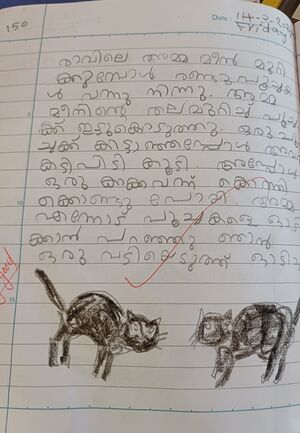 150
Date: 14-3-20
Friday
രാവിലെ അമ്മ മീൻ മുറി
ക്കുമ്പോൾ രണ്ടു പൂച്ചക
ൾ വന്നു നിന്നു. അമ്മ
മീനിന്റെ തലമുറിച്ച് പൂച്ച
ക്ക് ഇട്ടുകൊടുത്തു. ഒരുപൂ
ച്ചക്ക് കിട്ടാഞ്ഞപ്പോൾ അവർ
കടിപിടി കൂടി. അപ്പോൾ
ഒരു കാക്കവന്ന് കൊത്തി
ക്കൊണ്ടു പോയി അമ്മ
എന്നോട് പൂച്ചകളെ ഓടി
ക്കാൻ പറഞ്ഞു ഞാൻ
ഒരു വടിയെടുത്ത് ഓടിച്ചു
Good